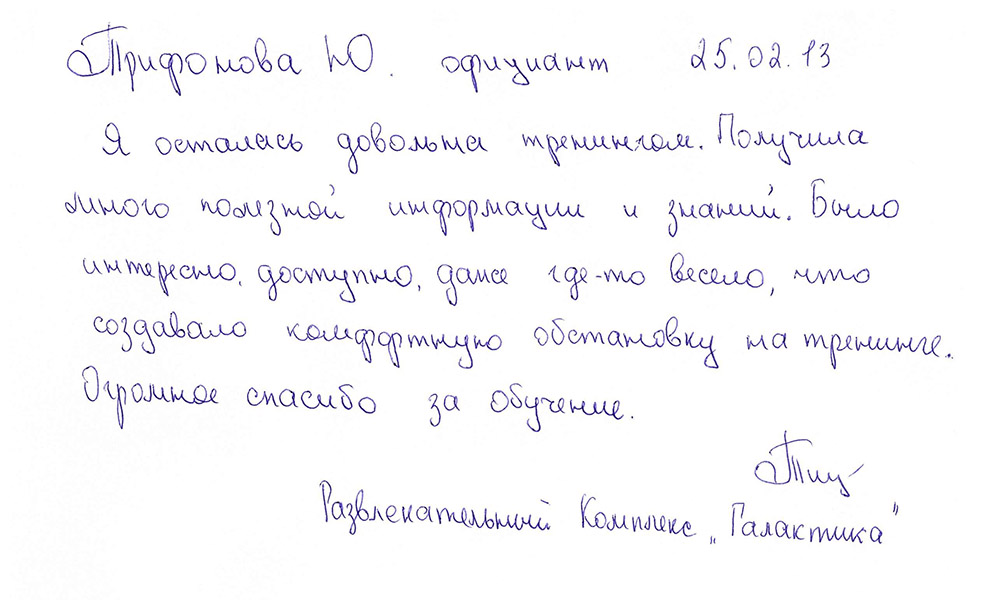 Трифонова Ю. официант 25.02.13
Я осталась довольна тренингом. Получила
много полезной информации и знаний. Было
интересно, доступно, даже где-то весело, что
создавало комфортную обстановку на тренинге.
Огромное спасибо за обучение.
Развлекательный Комплекс „Галактика"